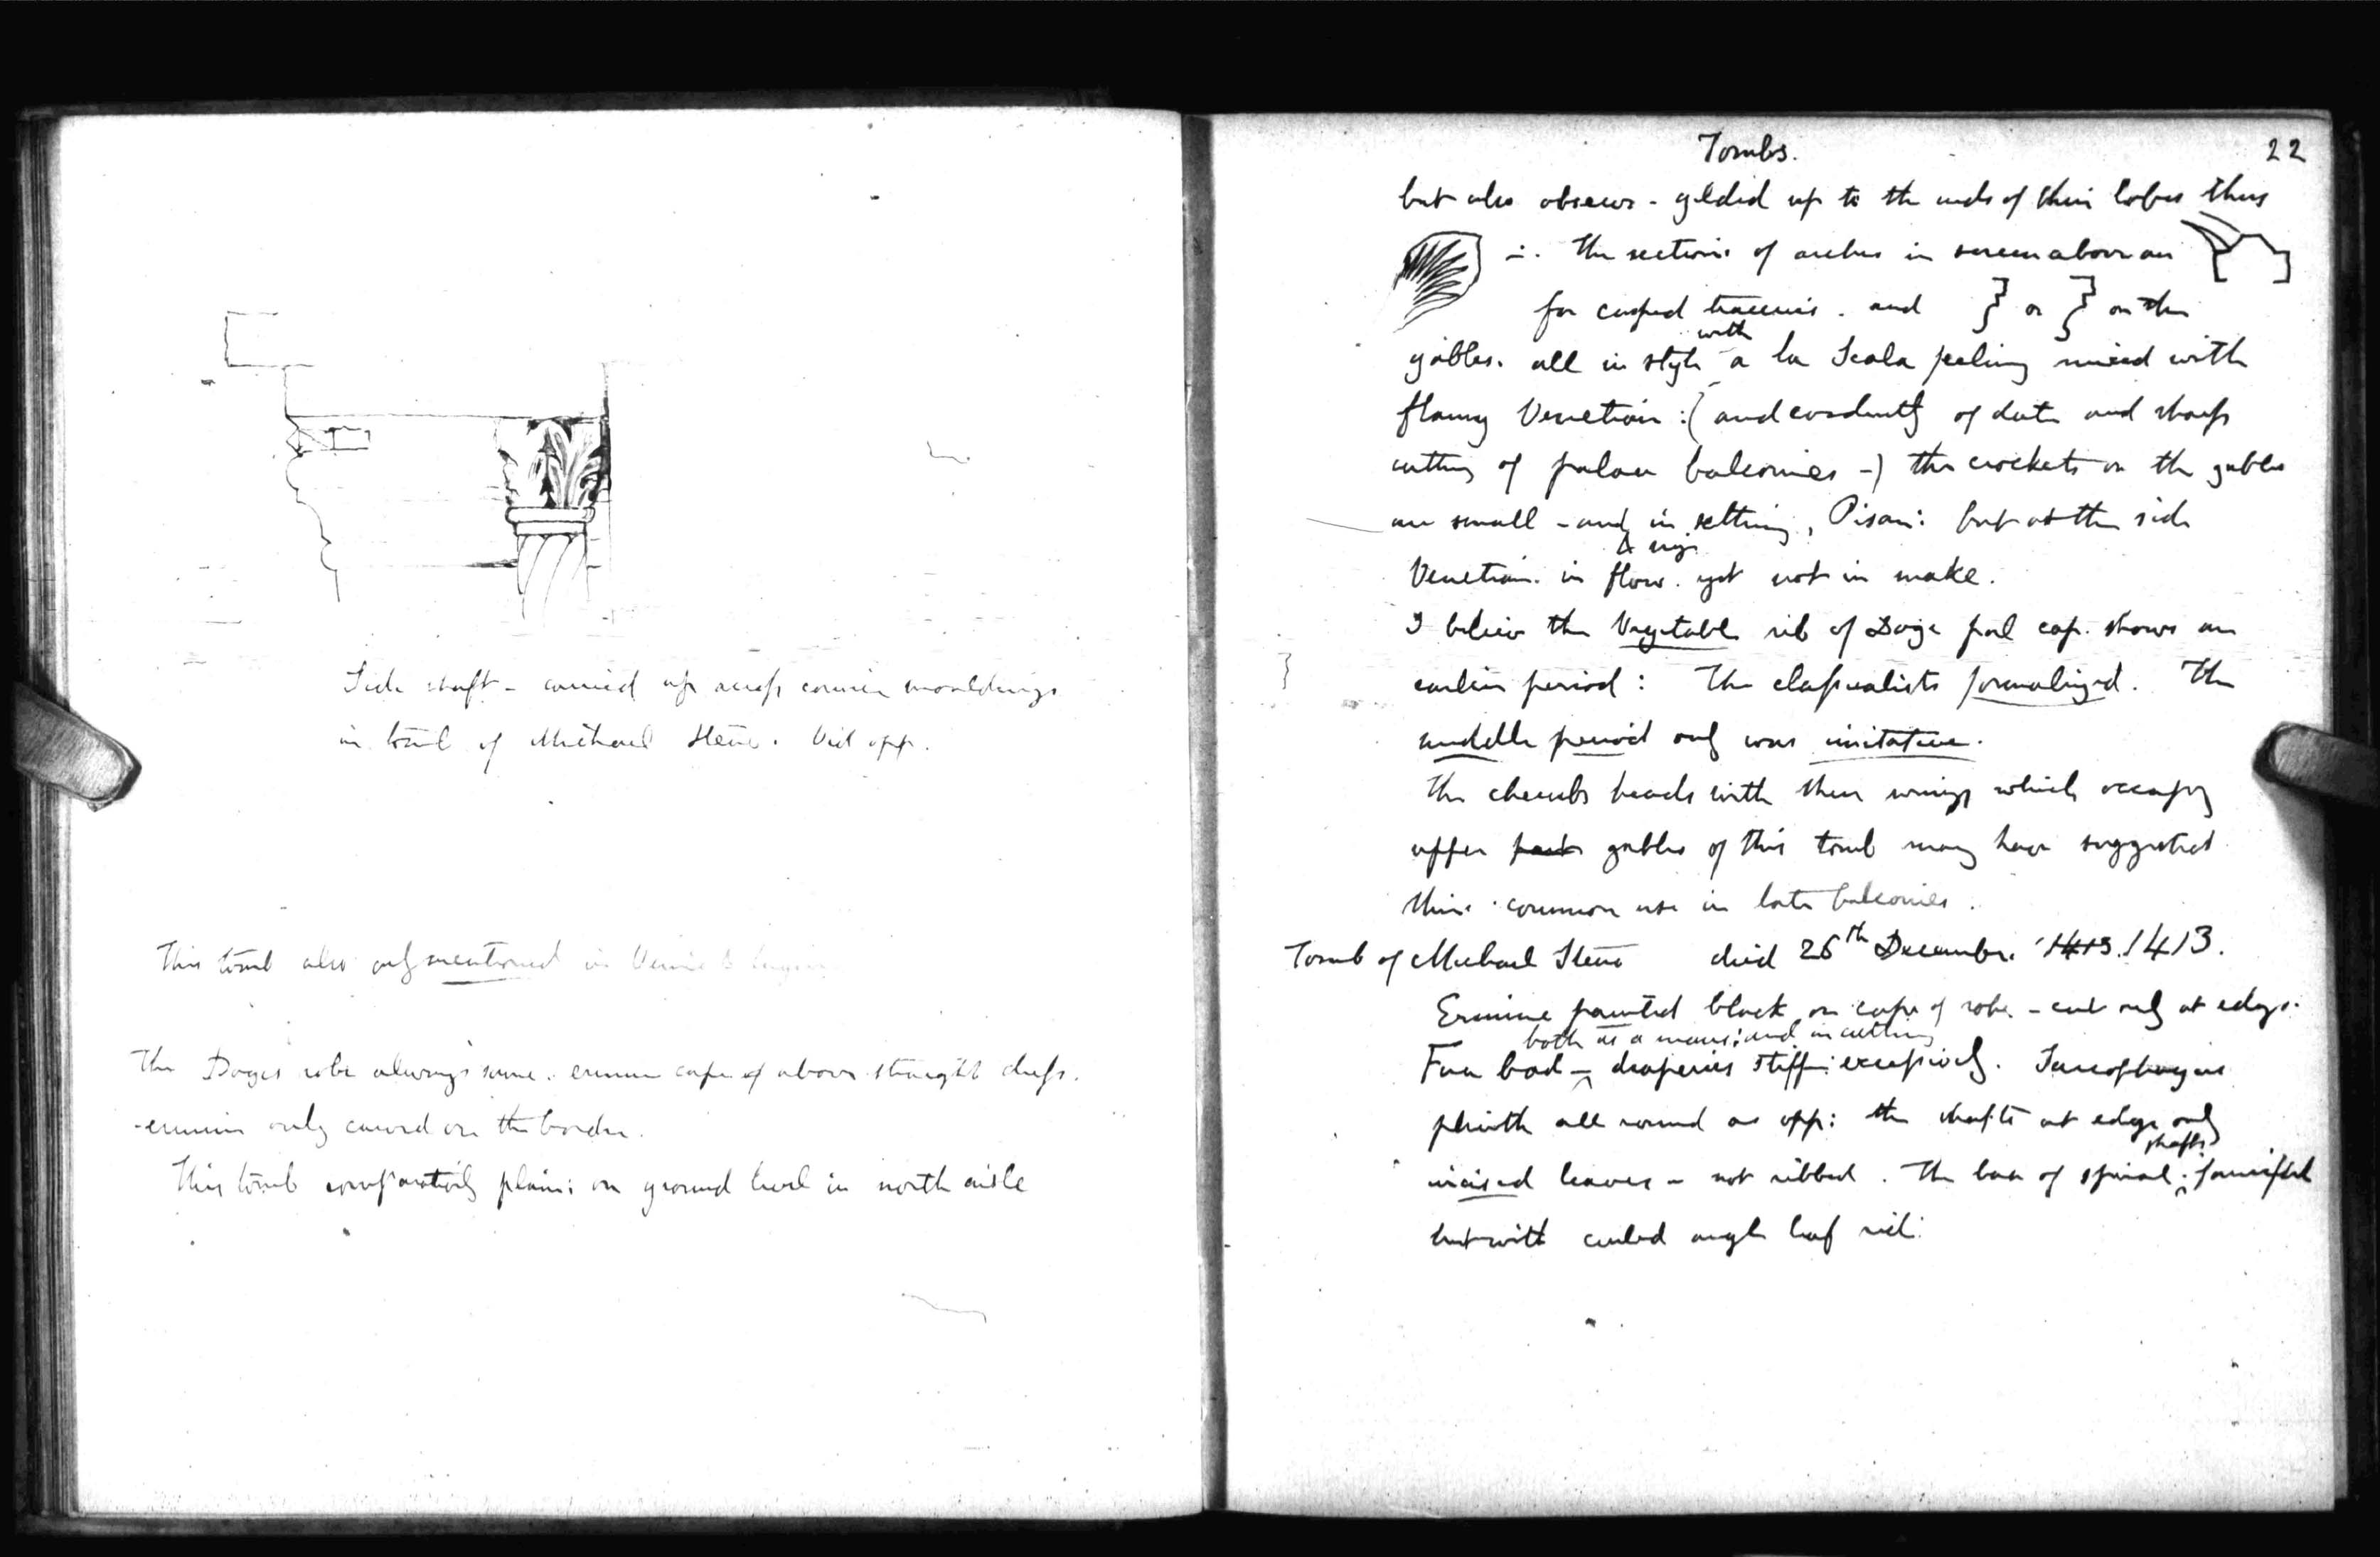 Side shaft - carried up across cornice mouldings
in tomb of Michael Steno. Vid opp.
This tomb also only mentioned in Venice
The Doges robe always same. ermine cape of above straight dress.
- ermine only carved on the border.
This tomb comparatively plain: on ground level in north aisle
Tombs. 22
but also observe - gilded up to the ends of their lobes thus
∴ The sections of arches in screen above are
for cusped traceries. and } or } on the
gables. all in style with a la Scala feeling mixed with
flamy Venetian: (and evidently of date and sharp
cutting of palace balconies -) the crockets on the gables
are small - and in setting, Pisan: but at the side
Venetian. in flow. yet not in make.
I believe the Vegetable rib of Doge pal cap. shows an
earlier period: The classicalists formalized. The
middle period only was imitative.
The cherubs heads with their wings which occupy
upper parts gables of this tomb may have suggested
their common use in late balconies.
Tomb of Michael Steno died 26th December. 1413. 1413.
Ermine painted black on cape of robe. - cut only at edges.
both as a mans: and in cutting
Face bad - draperies stiff: excessively. Sarcophagus
plinth all round as opp: the shafts at edge only
incised leaves - not ribbed. The base of spiral shafts:
but with curled angle leaf